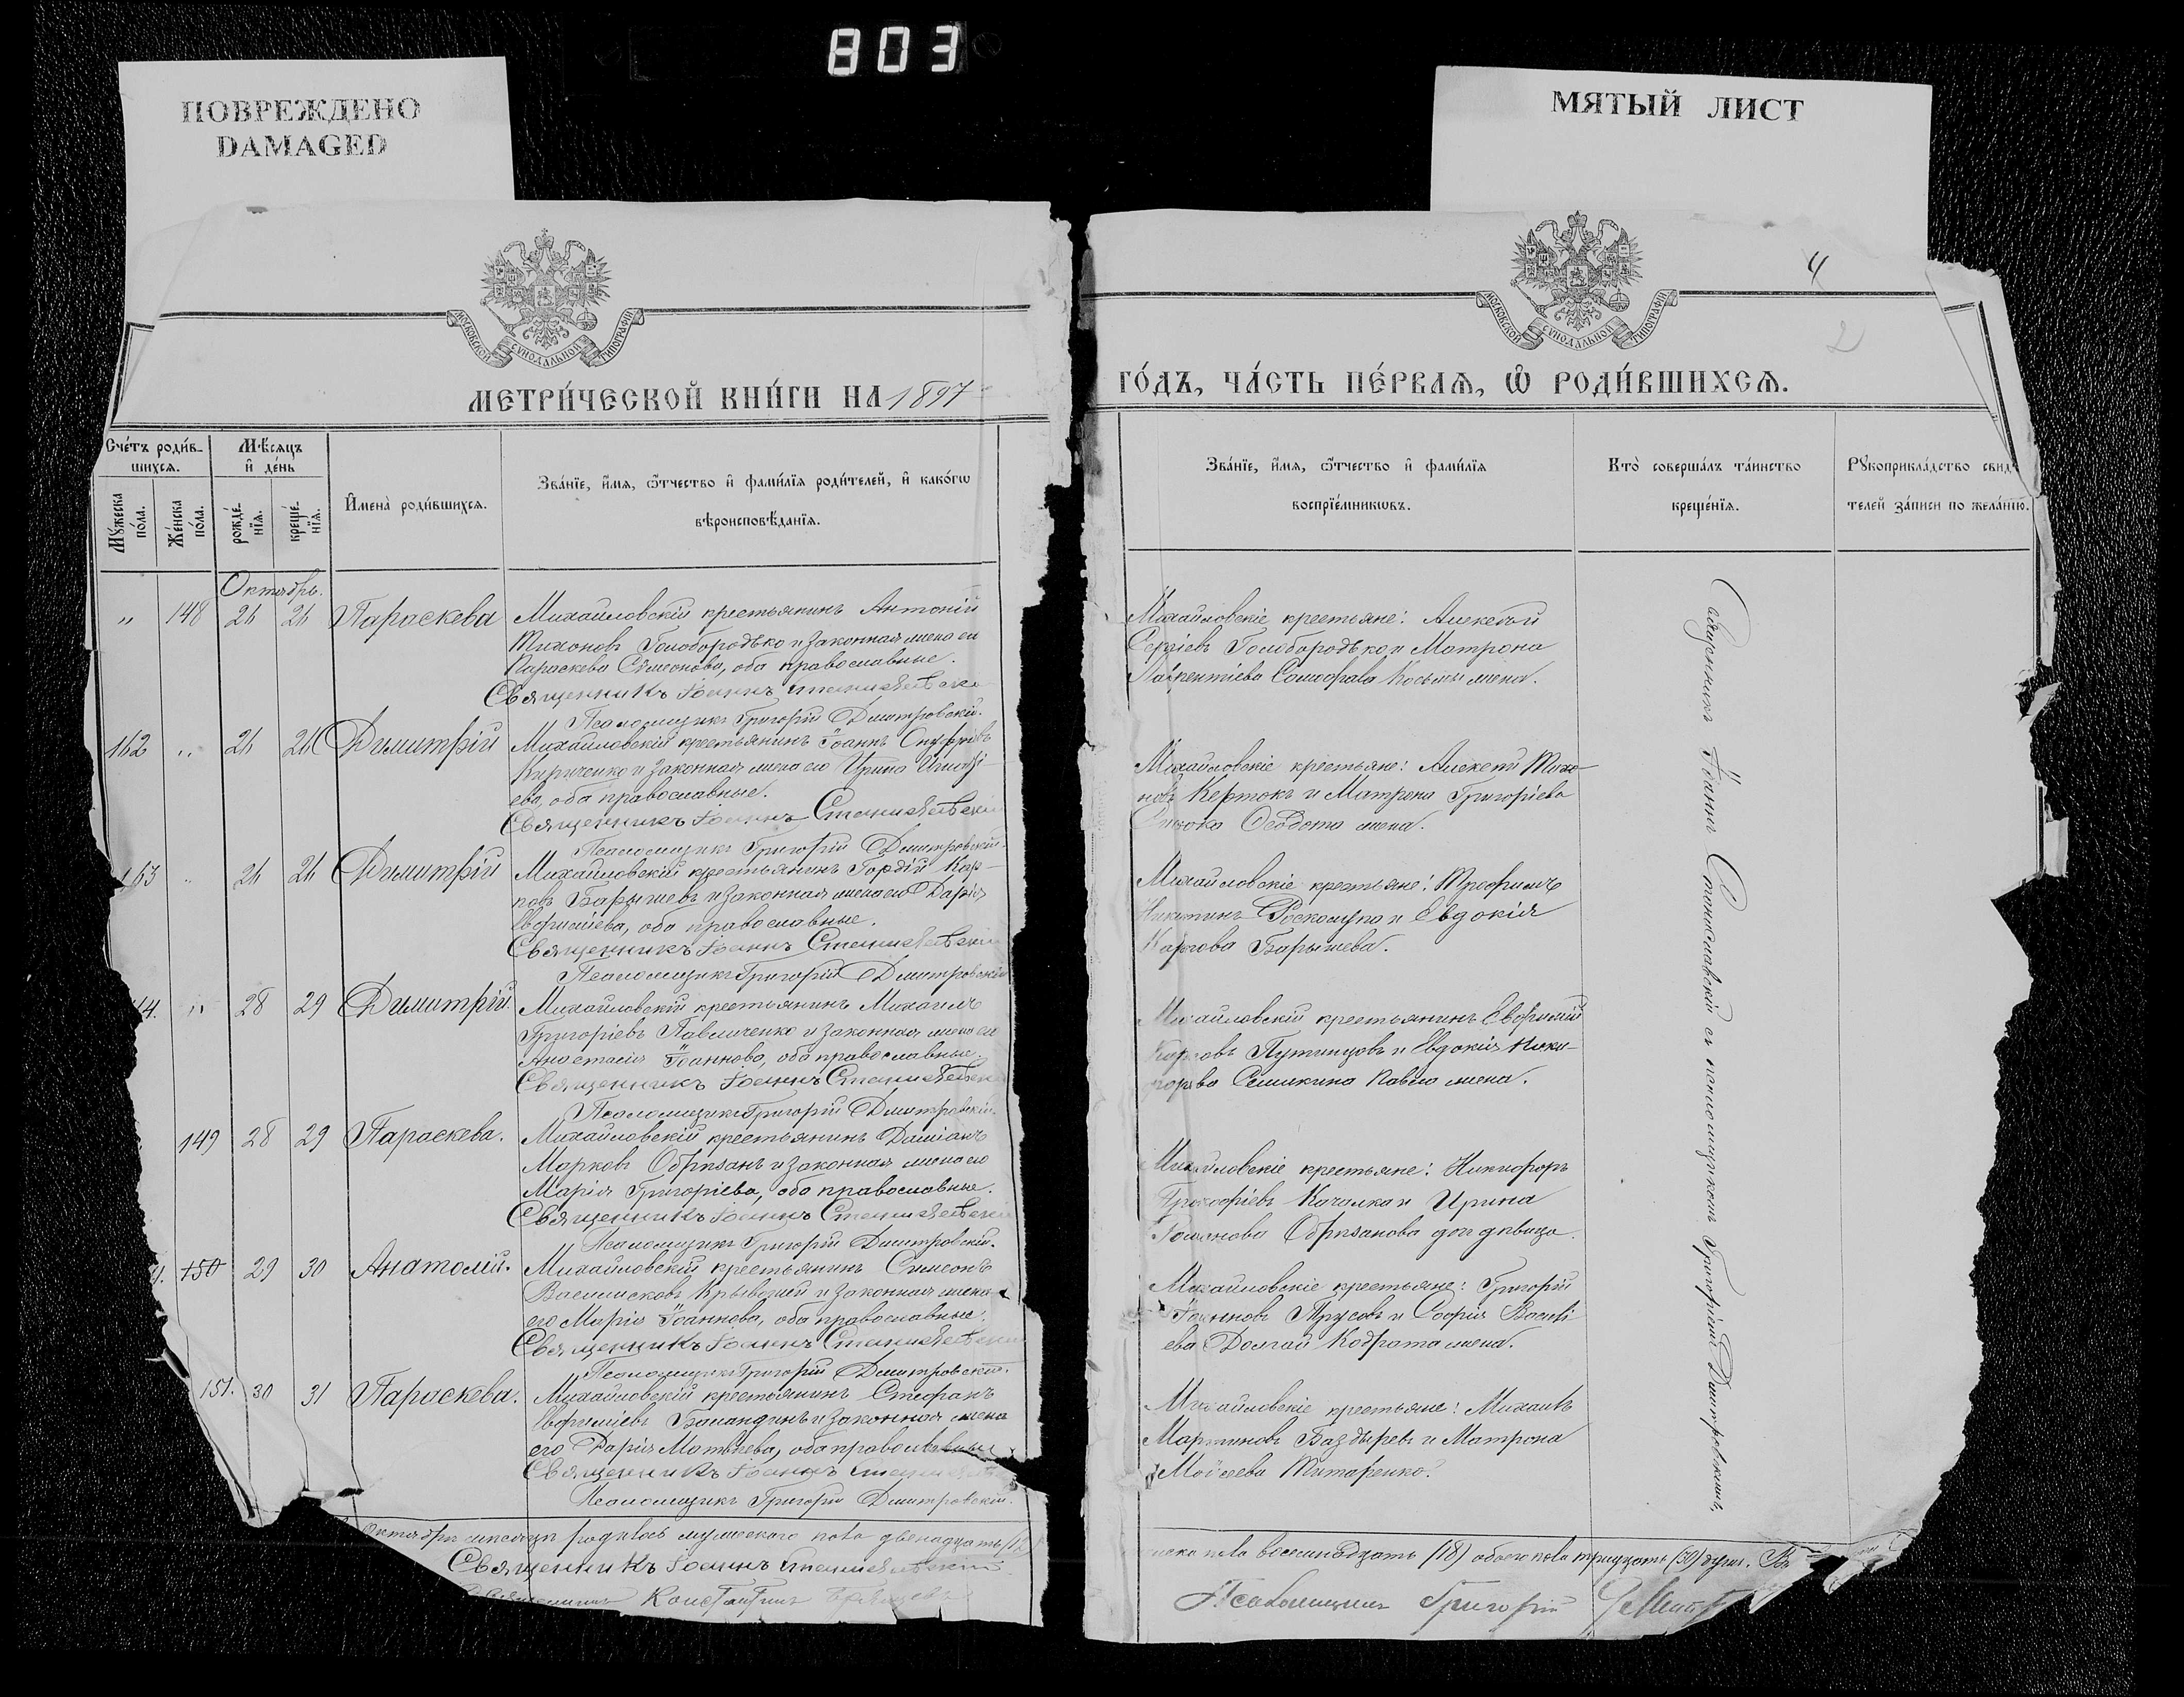 803
ПОВРЕЖДЕНО
DAMAGED
МЯТЫЙ ЛИСТ
4
2
МОСКОВСКОЙ СУНОДАЛЬНОЙ ТИПОГРАФІИ
МОСКОВСКОЙ СУНОДАЛЬНОЙ ТИПОГРАФІИ
МЕТРИ́ЧЕСКОЙ КНИ́ГИ НА 1897
ГО́ДЪ, ЧА́СТЬ ПЕ́РВАѦ, Ѿ РОДИ́ВШИХСѦ.
Сче́тъ роди́в-
шихсѧ.
Мѣ́сѧцъ
и҆ де́нь
Мꙋ́жеска
по́ла.
Же́нска
по́ла.
рожде́-
нїѧ.
креще́-
нїѧ.
И҆мена̀ роди́вшихсѧ.
Зва́нїе, и҆́мѧ, ѻ҆́тчество и҆ фами́лїѧ роди́телей, и҆ како́гѡ
вѣроисповѣ́данїѧ.
Зва́нїе, и҆́мѧ, ѻ҆́тчество и҆ фами́лїѧ
воспрїе́мникѡвъ.
Кто̀ соверша́лъ та́инство
креще́нїѧ.
Рꙋкоприкла́дство свидѣ
телей за́писи по жела́нїю.
Октябрь.
" 148 26 26 Параскева
Михайловскій крестьянинъ Антоній
Тихоновъ Голобородько и законная жена его
Параскева Симеонова, оба православные.
Священникъ Іоаннъ Станиславскі
Псаломщикъ Григорій Димитровскій.
Михайловскіе крестьяне: Алексѣй
Сергіевъ Голобородько и Матрона
Лаврентіева Косьмы жена.
162 " 26 26 Димитрій
Михайловскій крестьянинъ Іоаннъ Онуфріевъ
Кириченко и законная жена его Ирина Игнаті-
ева, оба православные.
Священникъ Іоаннъ Станиславскі
Псаломщикъ Григорій Димитровскій.
Михайловскіе крестьяне: Алексѣй Тихо-
новъ Кертокъ и Матрона Григоріева
Ѳеодота жена.
163 " 26 26 Димитрій
Михайловскій крестьянинъ Гордій Кар-
повъ Барышевъ и законная жена его Дарія
Евфиміева, оба православные.
Священникъ Іоаннъ Станиславскій
Псаломщикъ Григорій Димитровскій
Михайловскіе крестьяне: Трофимъ
Никитинъ и Евдокія
Карпова Барышева.
4. " 28 29 Димитрій.
Михайловскій крестьянинъ Михаилъ
Григоріевъ Павличенко и законная жена его
Анастасія Іоаннова, оба православные.
Священникъ Іоаннъ Станиславскі
Псаломщикъ Григорій Димитровскій.
Михайловскій крестьянинъ Евфимій
Карповъ Путинцовъ и Евдокія Ники-
форова Семикина Павла жена.
149 28 29 Параскева.
Михайловскій крестьянинъ Даміанъ
Марковъ Обризанъ и законная жена его
Марія Григоріева, оба православные.
Священникъ Іоаннъ Станиславскій
Псаломщикъ Григорій Димитровскій.
Михайловскіе крестьяне: Никифоръ
Прокофіевъ Качалка и Ирина
Романова Обризанова дѣвица.
150 29 30 Анатолій.
Михайловскій крестьянинъ Симеонъ
и законная жена
его Марія Іоаннова, оба православные.
Священникъ Іоаннъ Станиславскі
Псаломщикъ Григорій Димитровскій.
Михайловскіе крестьяне: Григорій
Іоанновъ Трусовъ и Софія Василі
ева Долгай Кодрата жена.
151. 30 31 Параскева.
Михайловскій крестьянинъ Стефанъ
Евфиміевъ Баландинъ и законная жена
его Дарія Матвѣева, оба православные
Священникъ Іоаннъ Станиславскі
Псаломщикъ Григорій Димитровскій.
Михайловскіе крестьяне: Михаилъ
Мартиновъ Баздыревъ и Матрона
Моѵсеева Титаренко.
Священникъ Іоаннъ Станиславскій съ псаломщикомъ Григоріемъ Димитровскимъ.
Октябрѣ мѣсяцѣ родилось мужескаго пола двенадцать (12)
женска пола восемнадцать (18) обоего пола тридцать (30) душъ. Въ
Священникъ Іоаннъ Станиславскій
Священникъ Константинъ
Псаломщикъ Григорій Димит